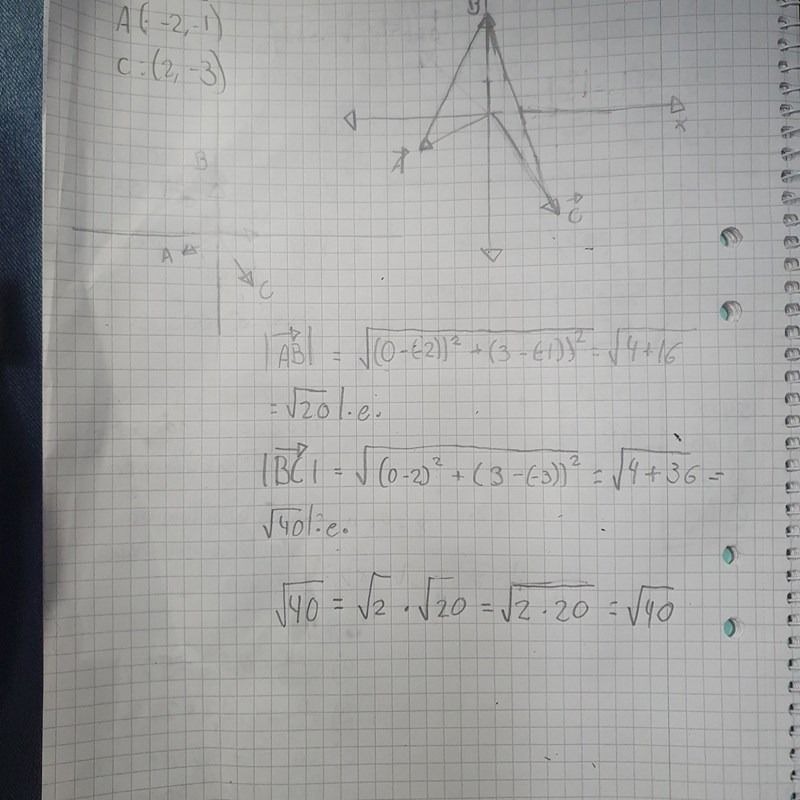 A(-2,-1)
C:(2,-3)
y
x
A
C
B
A
C
|AB| = √(0-(-2))² + (3-(-1))² = √4+16
= √20 l.e.
|BC| = √(0-2)² + (3-(-3))² = √4+36 =
√40 l.e.
√40 = √2 · √20 = √2·20 = √40